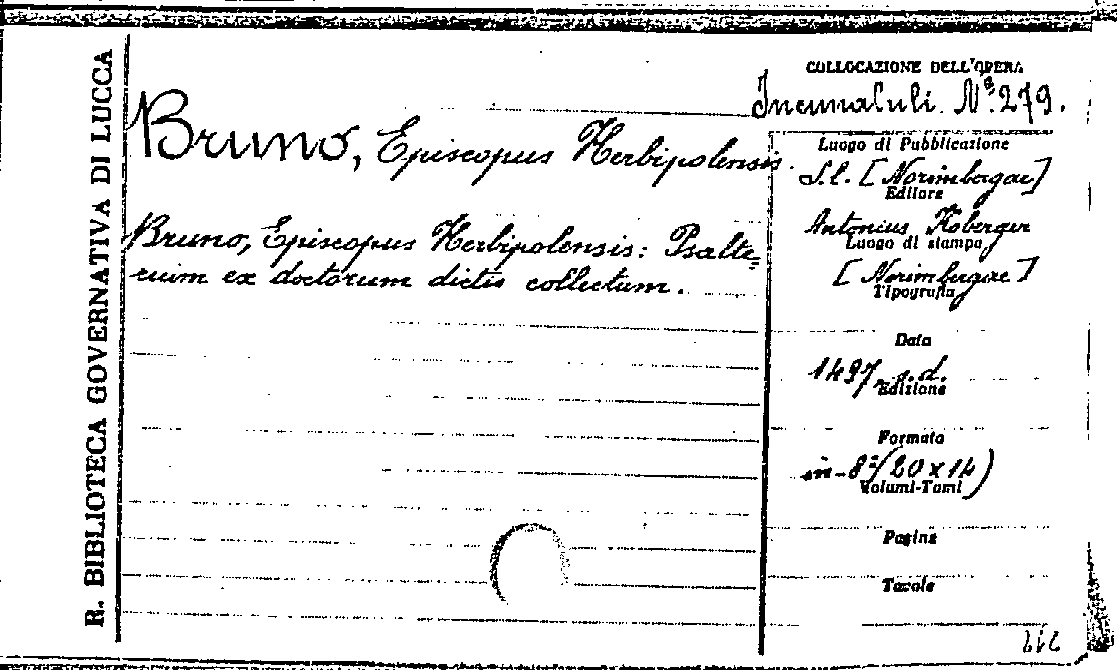 R. BIBLIOTECA GOVERNATIVA DI LUCCA
Bruno, Episcopus Herbipolensis.
Bruno, Episcopus Herbipolensis: Psalte=
rium ex doctorum dictis collectum.
COLLOCAZIONE DELL'OPERA
Incunaluli. Nº 279.
Luogo di Pubblicazione
S.l. [Norimbergae]
Editore
Antonius Koberger
Luogo di stampa
[Norimbergae]
Tipografia
Data
1497, s.d.
Edizione
Formato
in-8º (20 x 14)
Volumi-Tomi
Pagine
Tavole